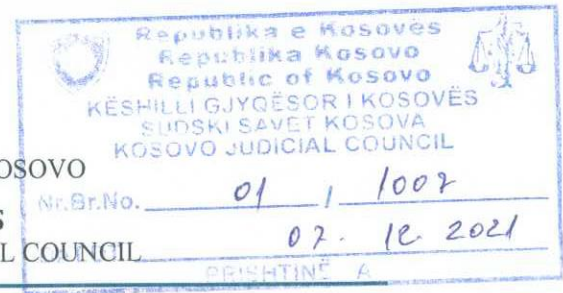 Republika e Kosovës
Republika Kosovo
Republic of Kosovo
KËSHILLI GJYQËSOR I KOSOVËS
SUDSKI SAVET KOSOVA
KOSOVO JUDICIAL COUNCIL
OSOVO
Nr.Br.No. 01 / 1007
S
07. 12. 2021
L COUNCIL
PRISHTINË A